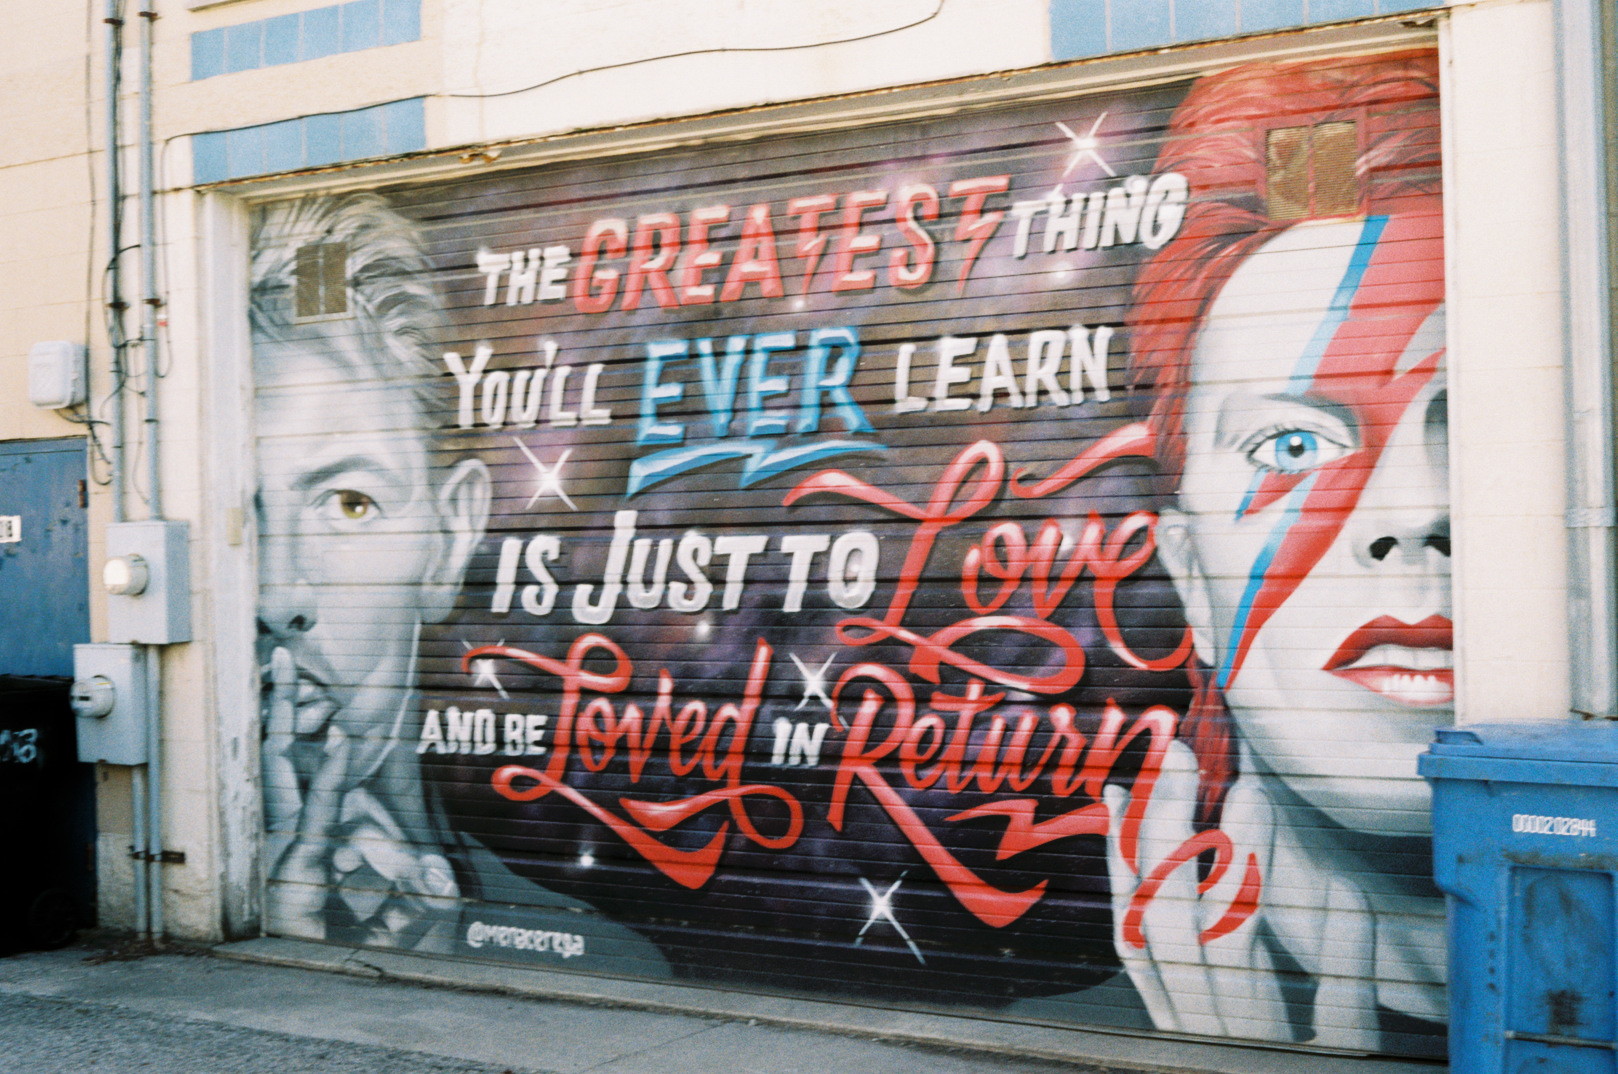 THE GREATEST THING
YOU'LL EVER LEARN
IS JUST TO Love
AND BE Loved IN Return
0000202844